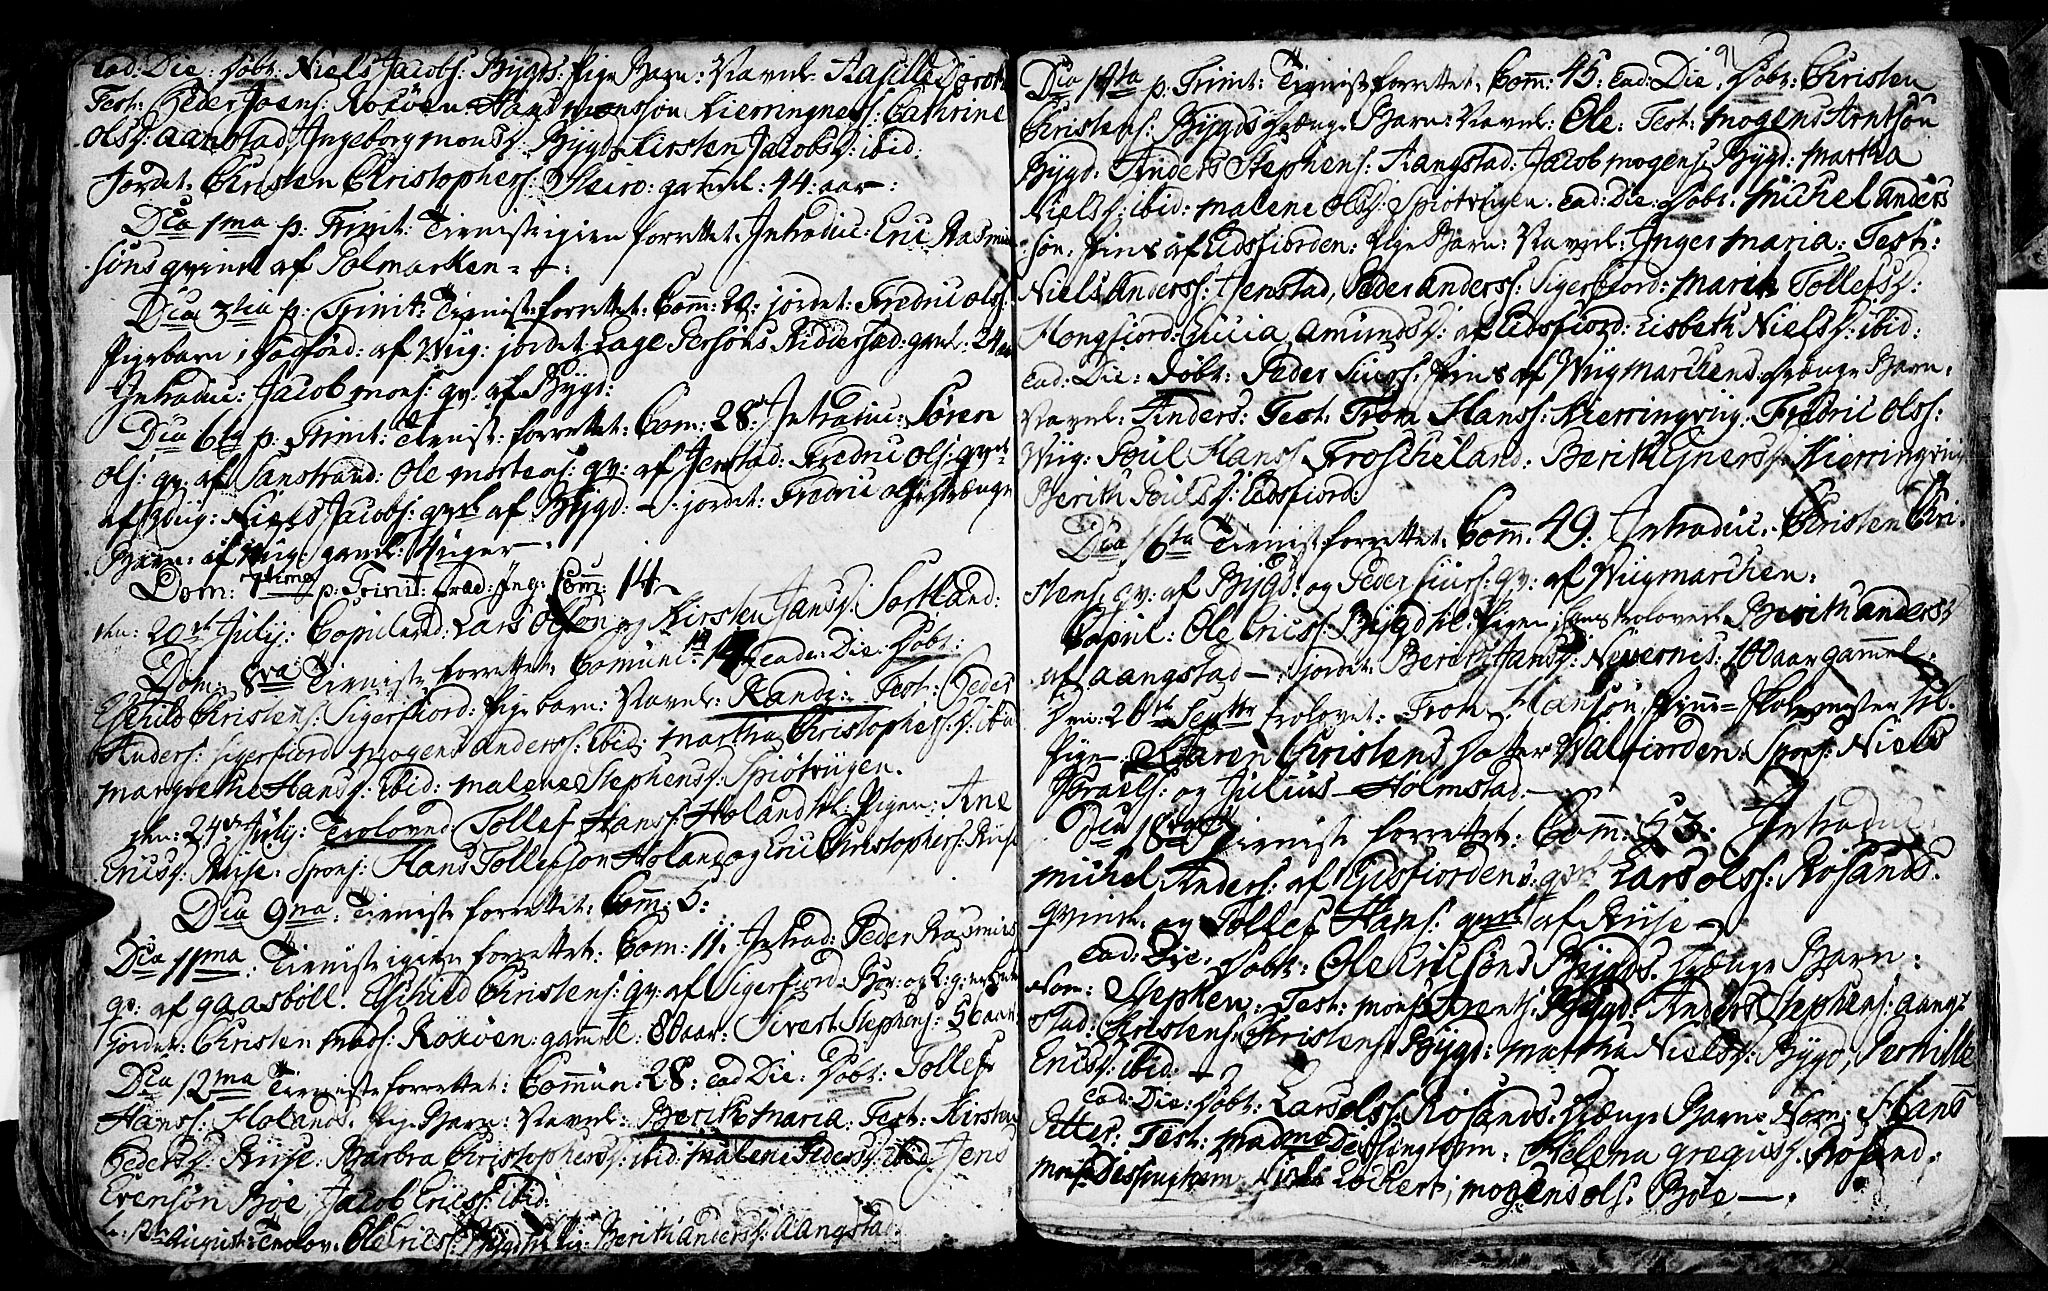 Ead: Die: døbt: Niels Jacobs: Bÿgds Pige Barn: Navnl:
Test: Peder Joens: Roxøen Hans monssøn Kierringnes: Cathrine
Olsd: aanstad, Ingeborg monsd: Bÿgd, Kirsten Jacobsd: ibid:
Jordet: Christen Christophers: gaml: 44: aar:
Dca 1ma p: Trinit: Tieniste igien forrettet. Introduc: Eric Rasmus
søns qvinde af Solmarken
Dca 3tia p: Trinit: Tieniste forrettet: Com: 20: jordet: Fredric ols:
Pigebarn: af Wiig: jordet Lage Persøns gaml: 24
Introduc: Jacob mons: qv: af Bÿgd:
Dca 6ta p: Trinit: Tienist: forrettet: Com: 28: Introduc: Søren
Ols: qv: af Sanstrand: Ole mortens: qv: af Jenstad: Fredric Ols: qvl:
af Wiig: Niels Jacobs: qvl: af Bÿgd: jordet: Fredric ols: drænge
Barn: af Wiig: gaml: Uger
Dom: 7tima p: Trinit: Præd: Com: 14
den: 20de Julÿ: Copulered: Lars Olsøn og Kirsten Jansd: Sortland:
Dom: 8va Tieniste forrettet: Comūn: Eade: Die: døbt:
Eschild Christens: Sigerfiord: Pige barn: Navnl: Randi: Test: Peder
Anders: sigerfiord mogens anderss: ibid: martha Christophersd: ibid
margrethe Hansd: ibid: malene Stephensd: Spiøtøgen.
den: 24de Julÿ: Trolovned: Tollef Hanss: Holand til: Pigen: Ane
Ericsd: Ruse. Spons: Hans Tollefsøn Holand og Eric Christophers: Ruse
Dca 9na: Tieniste forrettet: Com: 5:
Dca 11ma: Tieniste igien forrettet: Com: 11: Introd: Peder Rasmus
qv: af gaasbøll. Eschild Christens: qv: af Sigerfiord
Jordet: Christen mads: Roxøen gamel: 80 aar: Sivert Stephens: 56 aar
Dca 12ma Tieniste forrettet: Commūn: 28: ead Die: døbt: Tollef
Hanss: Holands. Pige Barn: Navnl: Berith maria: Test: Kirsten
Pedersd: Ruse: Barbra Christophersd: ibid: malene Pedersd: ibid, Jens
Evensøn Bøe, Jacob Ericss: ibid:
d: 12 August: Trolov: Ole Erics: Bÿgd til Berith Andersd: aangstad.
91
Dca 14ta p: Trinit: Tieniste forrettet: Com: 45: ead: Die: døbt: Christen
Christens: Bÿgds drænge Barn: Navnl: Ole: Test: mogens Arntsøn
Bÿgd: Anders Stephens: Aangstad: Jacob mogens: Bÿgd: martha
Nielsd: ibid: malene olsd: Spiøtøgen. ead: Die: døbt: michel anders
søn af Eidsfiorden: Pige Barn: Navnl: Inger maria: Test:
Niels Anderss: Jenstad, Peder anders: Sigerfiord: marit Tollefsd:
Hongfiord: Lucia amundsd: af Eidsfiord: Lisbeth Nielsd: ibid:
ead: Die: døbt: Peder Siurs: af Wiigmarchens drænge Barn,
Navnl: Anders: Test: From Hanss: Kierringviig: Fredric Olss:
Wiig: Poul Hanss: Froscheland: Berith Kierringviig
Berith Poulsd: Eidsfiord:
Dca 16ta Tieniste forrettet: Com: 49. Introduc: Christen Chri-
stens, qv: af Bÿgd: og Peder Siurs: qv: af Wiigmarchen:
Copul: Ole Erics: Bÿgd til Pigen, trolovede Berith andersd
af aangstad. jordet: Berith Jansd: Nevernes: 100 aar gammel.
den: 20de Septbr trolovet: From Hansøn, skolemester til
Pigen Karen Christens datter Walfiorden: Spons: Niels
Israels: og Julius Holmstad:
Dca 18va Tieniste forrettet: Com: 53: Introduc:
michel Anders: af Eidsfiorden: qvl: Lars olss: Røsands
qvinde og Tollef Hans: qvl: af Ruse
Ead: Die. døbt: Ole Ericsøns Bÿgds drænge Barn:
Nom: Stephen: Test: mons Arents: Bÿgd: Anders Stephens: aangs
stad: Christens: Christens: Bÿgd: martha Nielsd: Bÿgd, Pernille
Ericsd: ibid:
Ead: Die: døbt: Lars olss: Røsands: drænge Barn: Nom: Hans
Petter: Test: madme Dessingthom: Helena gregusd: Røsand:
mons: Dessingthom Lockert, mogens ols: Bøe